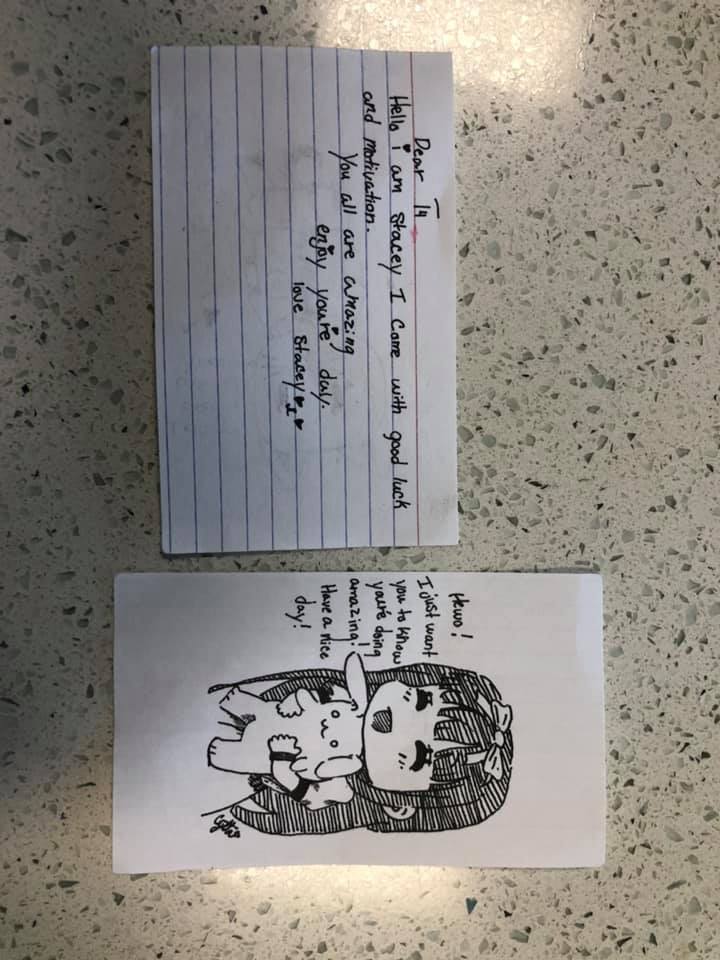 Dear
Hello i am Stacey I come with good luck
and motivation.
You all are amazing
enjoy you're day.
love Stacey
Hewo!
I just want
you to know
you're doing
amazing!
Have a nice
day!